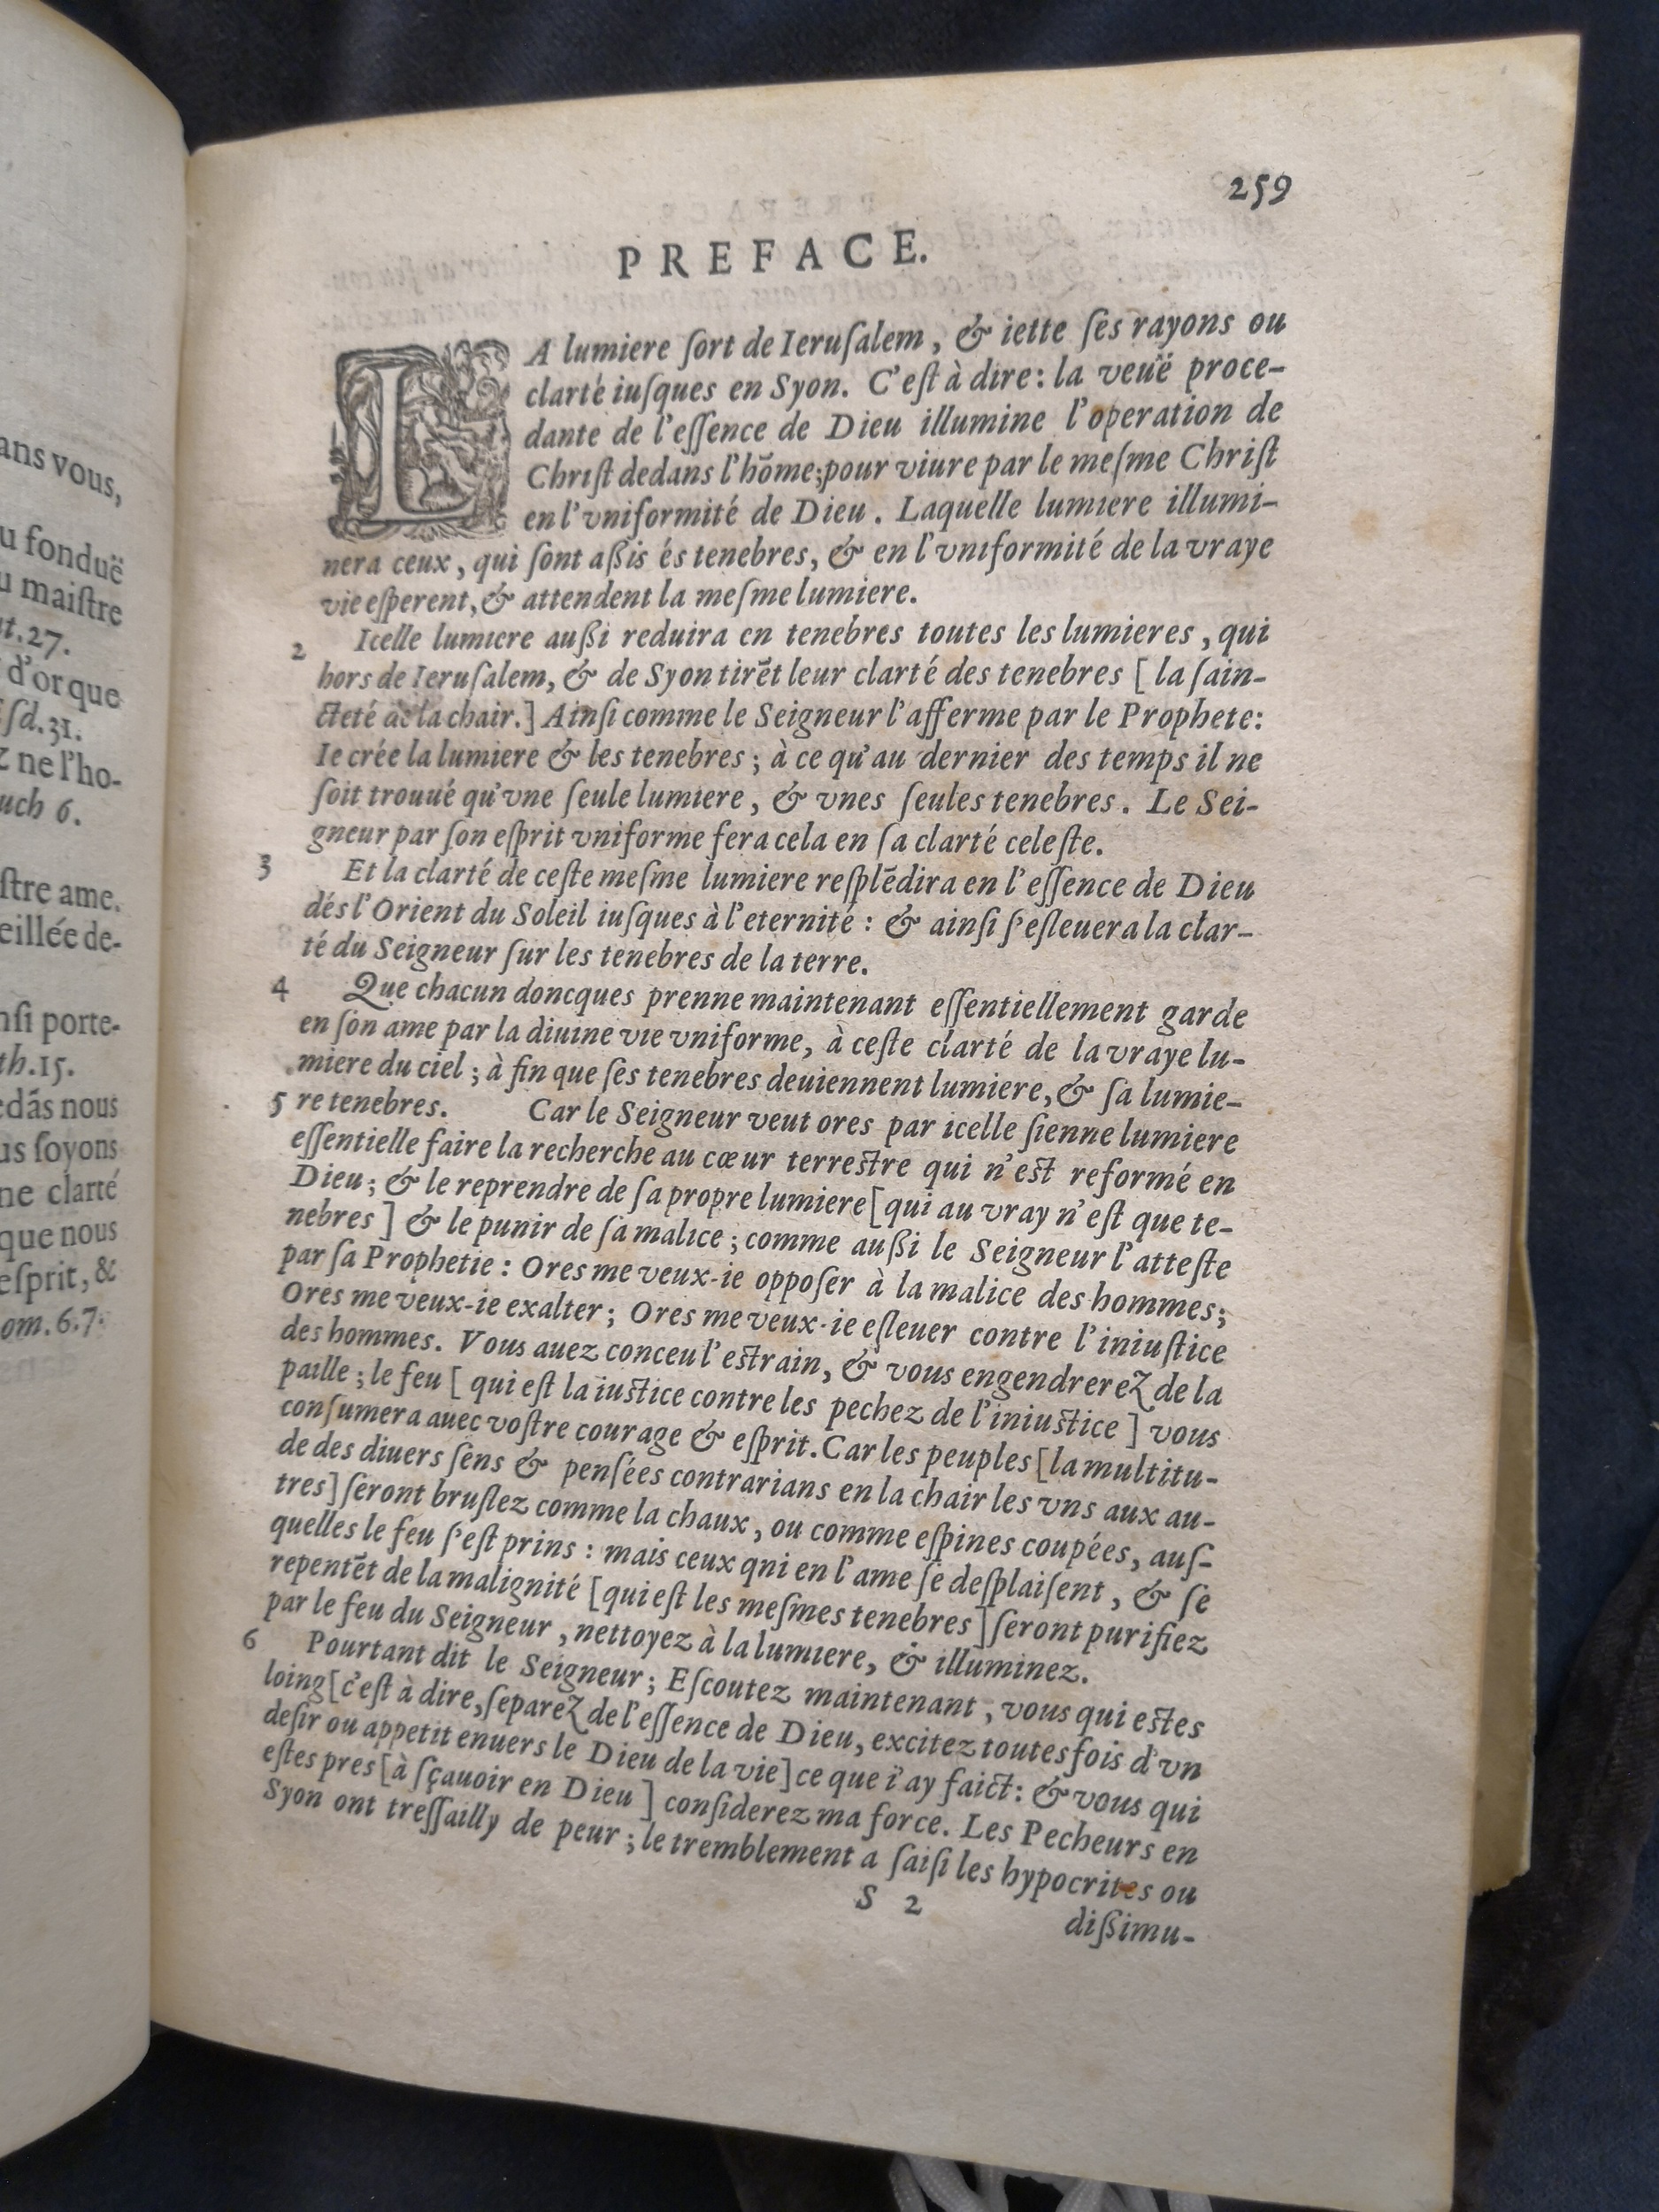 ans vous,
u fonduë
u maiſtre
at.27.
d'or que
ſd.31.
z ne l'ho-
uch 6.
ſtre ame.
eillée de-
nſi porte-
th.15.
edãs nous
us ſoyons
ne clarté
que nous
eſprit, &
om.6.7.
259
PREFACE.
LA lumiere ſort de Ieruſalem, & iette ſes rayons ou
clarté iuſques en Syon. C'eſt à dire: la veuë proce-
dante de l'eſſence de Dieu illumine l'operation de
Chriſt dedans l'hõme; pour viure par le meſme Chriſt
en l'vniformité de Dieu. Laquelle lumiere illumi-
nera ceux, qui ſont aßis és tenebres, & en l'vniformité de la vraye
vie eſperent, & attendent la meſme lumiere.
2 Icelle lumiere außi reduira en tenebres toutes les lumieres, qui
hors de Ieruſalem, & de Syon tirẽt leur clarté des tenebres [ la ſain-
cteté de la chair.] Ainſi comme le Seigneur l'afferme par le Prophete:
Ie crée la lumiere & les tenebres; à ce qu'au dernier des temps il ne
ſoit trouué qu'vne ſeule lumiere, & vnes ſeules tenebres. Le Sei-
gneur par ſon eſprit vniforme fera cela en ſa clarté celeſte.
3 Et la clarté de ceſte meſme lumiere reſplẽdira en l'eſſence de Dieu
dés l'Orient du Soleil iuſques à l'eternité: & ainſi ſ'eſleuera la clar-
té du Seigneur ſur les tenebres de la terre.
4 Que chacun doncques prenne maintenant eſſentiellement garde
en ſon ame par la diuine vie vniforme, à ceſte clarté de la vraye lu-
miere du ciel; à fin que ſes tenebres deuiennent lumiere, & ſa lumie-
5 re tenebres. Car le Seigneur veut ores par icelle ſienne lumiere
eſſentielle faire la recherche au cœur terreſtre qui n'eſt reformé en
Dieu; & le reprendre de ſa propre lumiere [qui au vray n'eſt que te-
nebres ] & le punir de ſa malice; comme außi le Seigneur l'atteſte
par ſa Prophetie: Ores me veux-ie oppoſer à la malice des hommes;
Ores me veux-ie exalter; Ores me veux-ie eſleuer contre l'iniuſtice
des hommes. Vous auez conceu l'eſtrain, & vous engendrerez de la
paille; le feu [ qui eſt la iuſtice contre les pechez de l'iniuſtice ] vous
conſumera auec voſtre courage & eſprit. Car les peuples [la multitu-
de des diuers ſens & penſées contrarians en la chair les vns aux au-
tres] ſeront bruſlez comme la chaux, ou comme eſpines coupées, auſ-
quelles le feu ſ'eſt prins: mais ceux qni en l'ame ſe deſplaiſent, & ſe
repentẽt de la malignité [qui eſt les meſmes tenebres ] ſeront purifiez
par le feu du Seigneur, nettoyez à la lumiere, & illuminez.
6 Pourtant dit le Seigneur; Eſcoutez maintenant, vous qui eſtes
loing [c'eſt à dire, ſeparez de l'eſſence de Dieu, excitez toutesfois d'vn
deſir ou appetit enuers le Dieu de la vie] ce que i'ay faict: & vous qui
eſtes pres [à ſçauoir en Dieu ] conſiderez ma force. Les Pecheurs en
Syon ont treſſailly de peur; le tremblement a ſaiſi les hypocrites ou
S 2
dißimu-